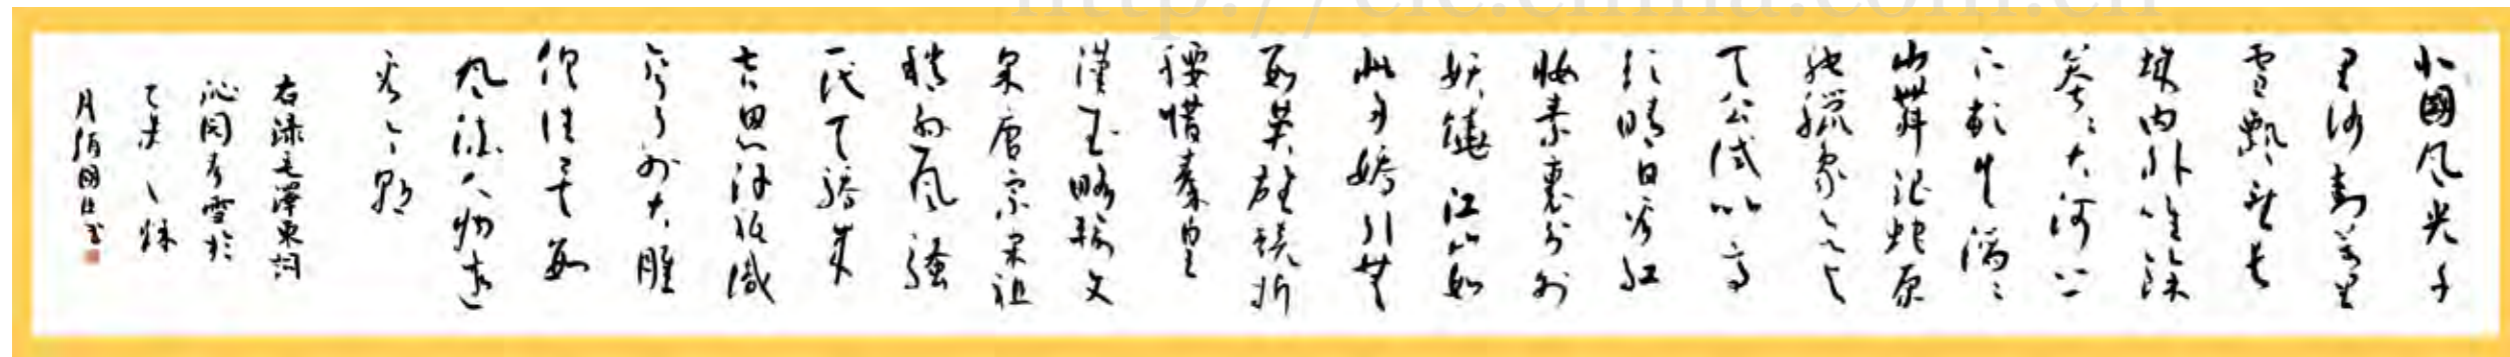 北國风光千
里冰封萬里
雪飘望長
城内外唯餘
莽〻大河上
下頓失滔〻
山舞银蛇原
馳蠟象欲与
天公试比高
须晴日看红
妝素裹分外
妖嬈江山如
此多嬌引無
數英雄競折
腰惜秦皇
漢武略输文
采唐宗宋祖
稍逊风骚
一代天骄成
吉思汗只识
弯弓射大雕
俱往矣数
风流人物还
看今朝
右録毛澤東詞
沁园春雪於
之秋
月